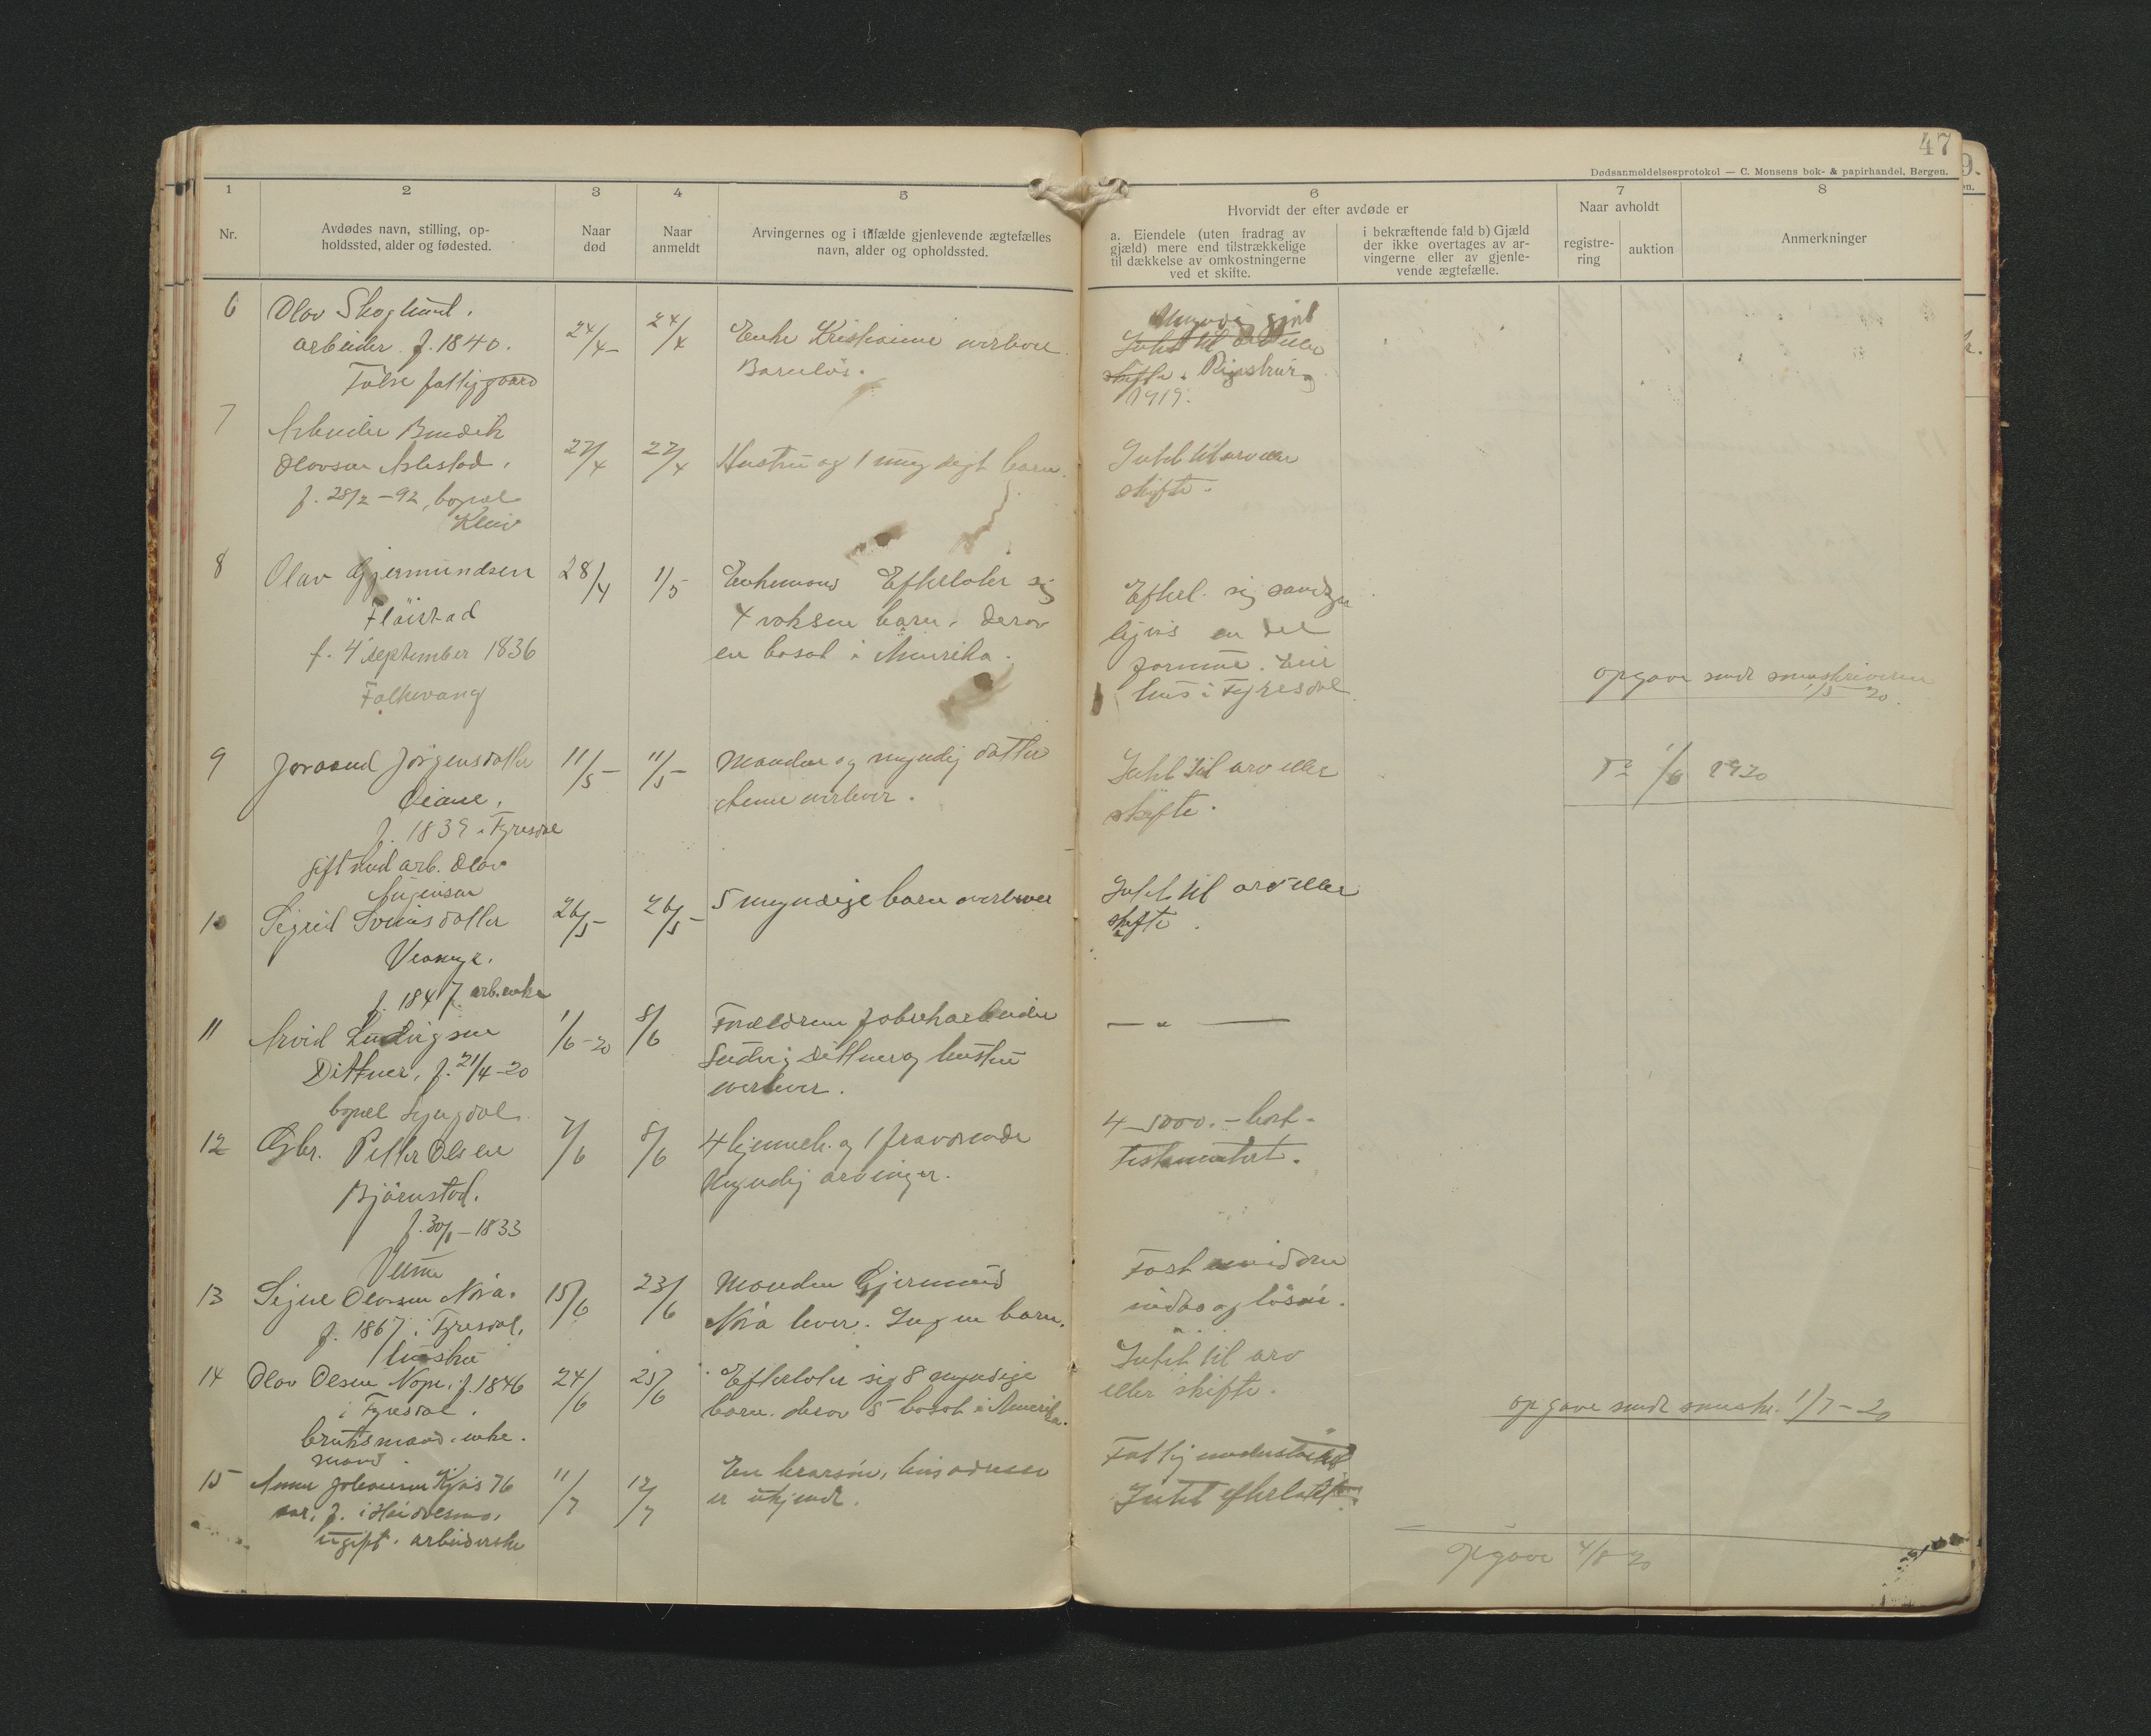 47
Dødsanmeldelsesprotokol — C. Monsens bok- & papirhandel, Bergen.
1 2 3 4 5 6 7 8
Nr.
Avdødes navn, stilling, op-
holdssted, alder og fødested.
Naar
død
Naar
anmeldt
Arvingernes og i tilfælde gjenlevende ægtefælles
navn, alder og opholdssted.
Hvorvidt der efter avdøde er
a. Eiendele (uten fradrag av
gjæld) mere end tilstrækkelige
til dækkelse av omkostningerne
ved et skifte.
i bekræftende fald b) Gjæld
der ikke overtages av ar-
vingerne eller av gjenle-
vende ægtefælle.
Naar avholdt
registre-
ring
auktion
Anmerkninger
6
Olav Skoglund.
arbeider f. 1840.
fattiggaard
24/4
24/4
Enke Kristiane overlever.
Barnløs.
Intet til arv eller
skifte.
1919.
7
Arbeider Bendik
Olavsen
f. 28/2 - 92, bopæl
Kleiv
27/4
27/4
Hustru og 1 umyndigt barn.
Intet til arv eller
skifte.
8
Olav Gjermundsen
Fläistad
f. 4 september 1836
Folkevang
28/4
1/5
Enkemand Efterlater sig
4 voksne barn. derav
en bosat i Amerika.
Efterl. sig sandsyn
ligvis en del
formue. Eier
hus i Fyresdal
opgave sendt sorenskriveren
1/5 20.
9
Joraand Jørgensdatter
f. 1839 i Fyresdal
gift med arb. Olav
11/5
11/5
Manden og myndig datter
Anne overlever.
Intet til arv eller
skifte.
1/6 1920
10
Sigrid Svensdatter
f. 1847 arb.enke
26/5
26/5
5 myndige barn overlever
Intet til arv eller
skifte.
11
Arvid Ludvigsen
Dittner, f. 21/4-20
bopæl Lyngdal
1/6-20
8/6
Forældrene fabrikarbeider
Ludvig Dittner og hustru
overlever.
— " —
12
Gbr. Petter Olsen
Bjørnstad.
f. 30/1 - 1833
7/6
8/6
4 hjemmeh. og 1 fraværende
Myndig arvinger.
4-5000.-
testamentert.
13
Signe Olavsen Norå.
f. 1867 i Fyresdal,
hustru
15/6
23/6
Manden Gjermund
Norå lever. Ingen barn.
Fast eiendom
indbo og løsøre.
14
Olav Olsen Nope, f. 1846
i Fyresdal.
bruksmand. enke-
mand.
24/6
25/6
Efterlater sig 8 myndige
barn. derav 5 bosat i Amerika.
Intet til arv
eller skifte.
opgave sendt sorenskr. 1/7-20
15
Anne Johansen Kjos 76
aar, f. i Høidalsmo.
ugift. arbeiderske
11/7
12/7
En brorsøn, hvis adresse
er ukjendt.
Fattigunderstøttet
Intet efterlatt
opgave 4/8 20